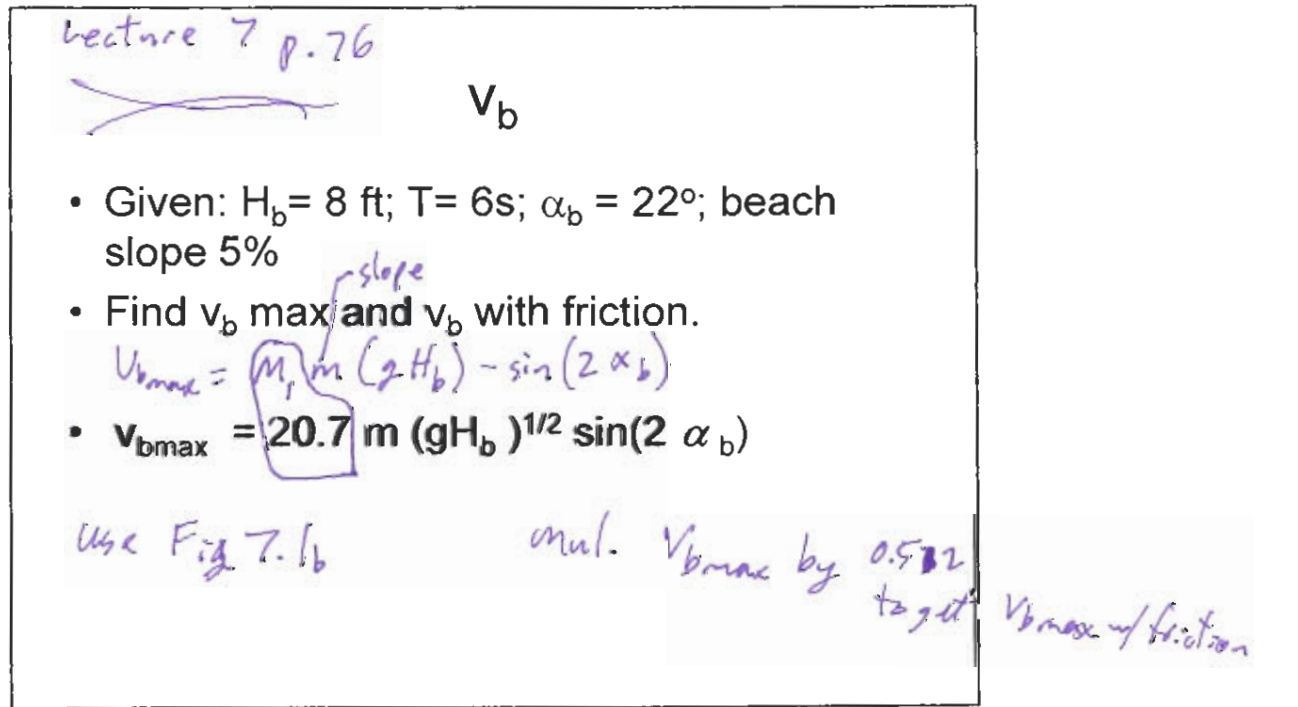 Lecture 7 p.76
v_b
• Given: H_b= 8 ft; T= 6s; α_b = 22º; beach
slope 5%
slope
• Find v_b max and v_b with friction.
V_bmax = M, m (g H_b) - sin(2 α_b)
• v_bmax = 20.7 m (gH_b )^1/2 sin(2 α_b)
use Fig 7.1b
mul. V_bmax by
to get V_bmax w/ friction